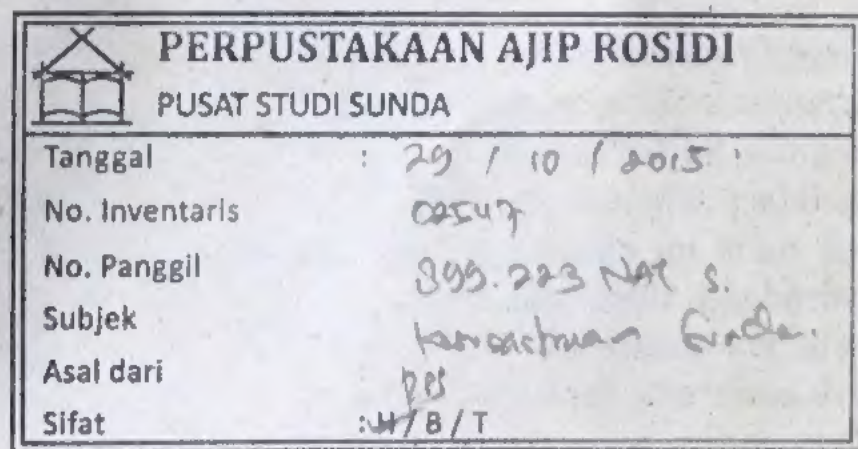 PERPUSTAKAAN AJIP ROSIDI
PUSAT STUDI SUNDA
Tanggal : 29 / 10 / 2015
No. Inventaris 02547
No. Panggil 899.223 NAT s.
Subjek Sunda.
Asal dari PSS
Sifat : H / B / T